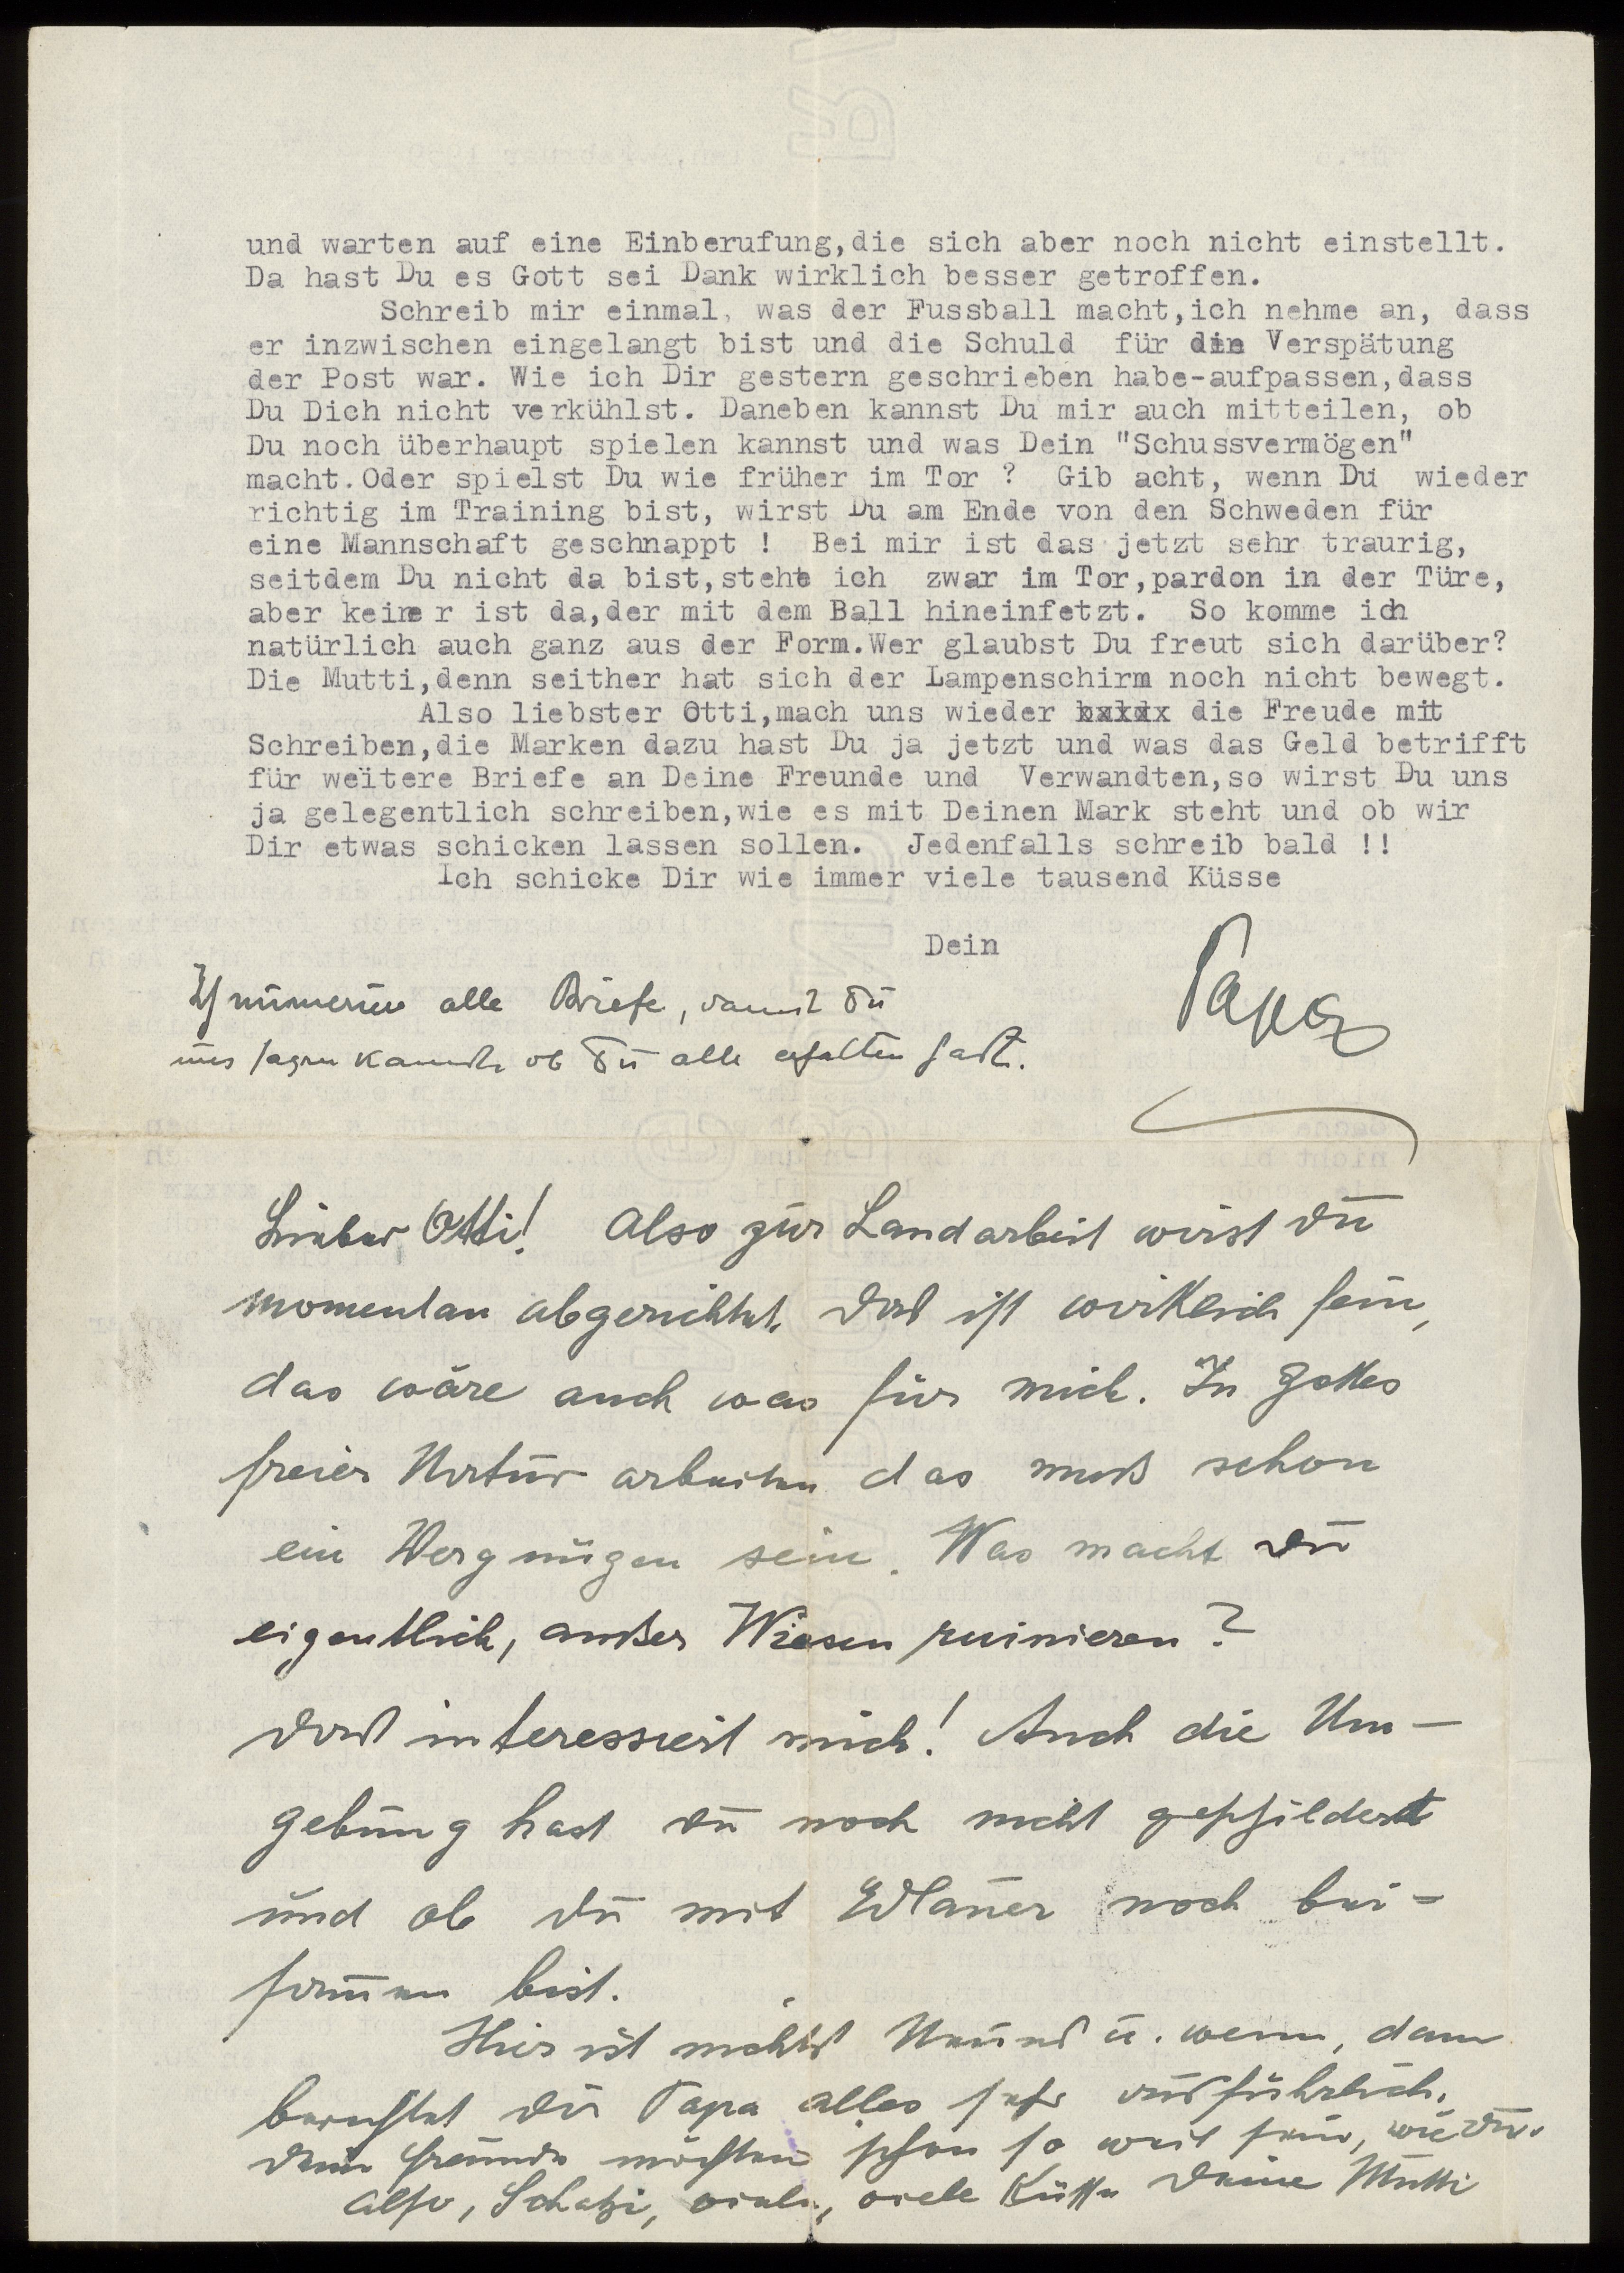 und warten auf eine Einberufung,die sich aber noch nicht einstellt.
Da hast Du es Gott sei Dank wirklich besser getroffen.
Schreib mir einmal, was der Fussball macht,ich nehme an, dass
er inzwischen eingelangt bist und die Schuld für die Verspätung
der Post war. Wie ich Dir gestern geschrieben habe-aufpassen,dass
Du Dich nicht verkühlst. Daneben kannst Du mir auch mitteilen, ob
Du noch überhaupt spielen kannst und was Dein "Schussvermögen"
macht.Oder spielst Du wie früher im Tor ? Gib acht, wenn Du wieder
richtig im Training bist, wirst Du am Ende von den Schweden für
eine Mannschaft geschnappt ! Bei mir ist das jetzt sehr traurig,
seitdem Du nicht da bist,stehe ich zwar im Tor,pardon in der Türe,
aber keiner ist da,der mit dem Ball hineinfetzt. So komme ich
natürlich auch ganz aus der Form.Wer glaubst Du freut sich darüber?
Die Mutti,denn seither hat sich der Lampenschirm noch nicht bewegt.
Also liebster Otti,mach uns wieder die Freude mit
Schreiben,die Marken dazu hast Du ja jetzt und was das Geld betrifft
für weitere Briefe an Deine Freunde und Verwandten,so wirst Du uns
ja gelegentlich schreiben,wie es mit Deinen Mark steht und ob wir
Dir etwas schicken lassen sollen. Jedenfalls schreib bald !!
Ich schicke Dir wie immer viele tausend Küsse
Dein
Papa
Ich numeriere alle Briefe, damit Du
uns sagen kannst, ob Du alle erhalten hast.
Lieber Otti! Also zur Landarbeit wirst du
momentan abgerichtet. Das ist wirklich fein,
das wäre auch was für mich. In Gottes
freier Natur arbeiten das muß schon
ein Vergnügen sein. Was macht du
eigentlich, außer Wiesen ruinieren?
Das interessiert mich! Auch die Um-
gebung hast du noch nicht geschildert
und ob du mit Edlauer noch bei-
sammen bist.
Hier ist nichts Neues u. wenn, dann
berichtet dir Papa alles sehr ausführlich.
Deine Freunde möchten schon so weit sein, wie du.
Also, Schatzi, viele, viele Küsse Deine Mutti